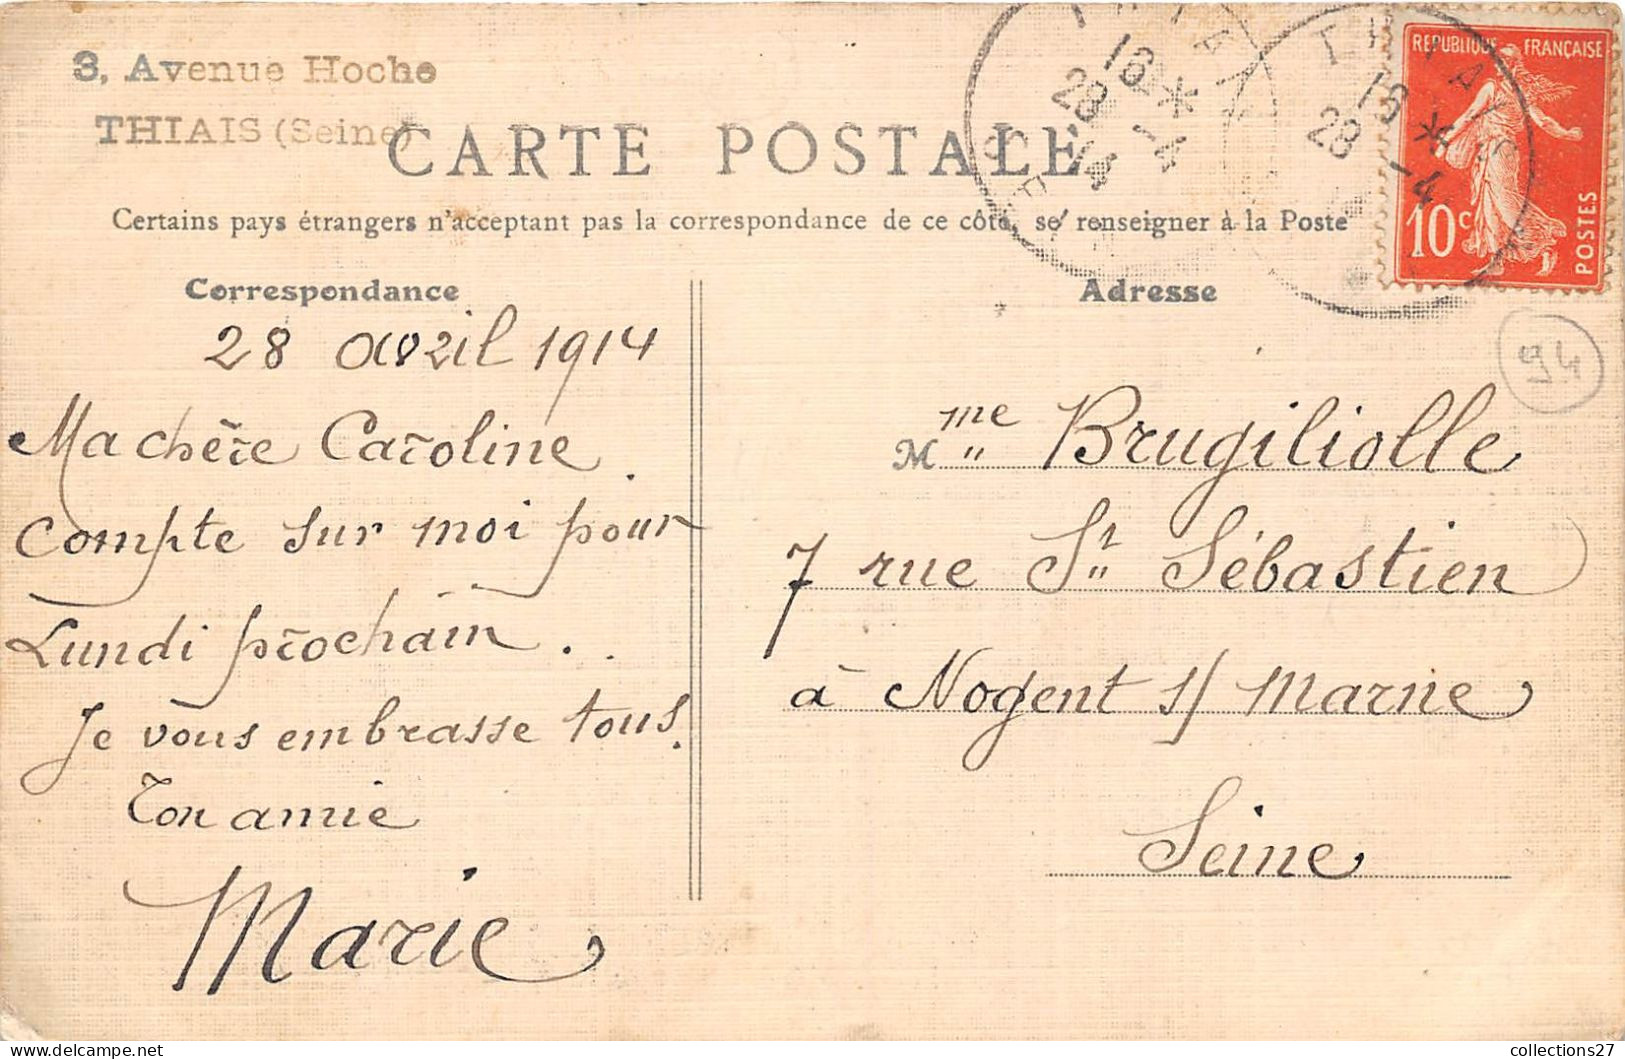 3, Avenue Hoche
THIAIS (Seine)
CARTE POSTALE
Certains pays étrangers n'acceptant pas la correspondance de ce côté, se renseigner à la Poste
REPUBLIQUE FRANÇAISE
10c POSTES
THIAIS
16 *
28 -4
14
SEINE
THIAIS
16 *
28 -4
94
Correspondance
28 avril 1914
Ma chère Caroline
Compte sur moi pour
Lundi prochain.
Je vous embrasse tous.
Ton amie
Marie
Adresse
Mme Brugiliolle
7 rue St Sébastien
à Nogent s/ Marne
Seine
collections27